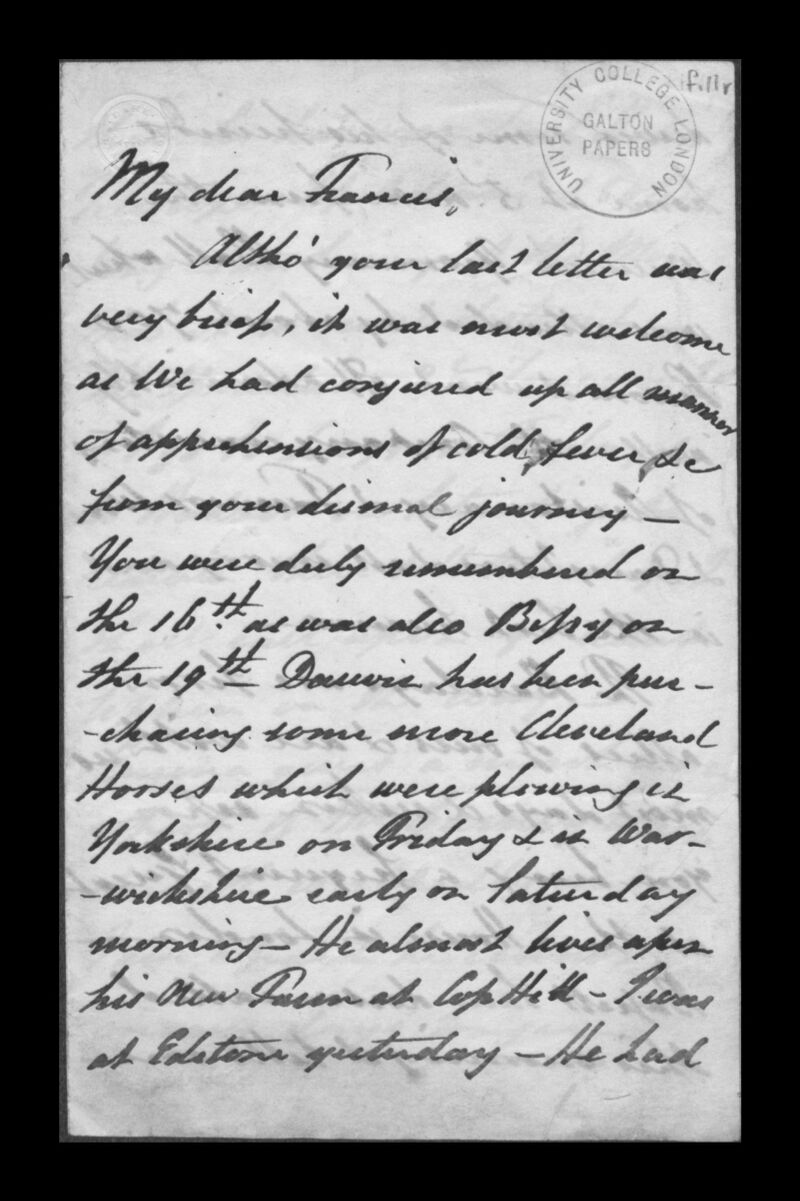 f.11r
UNIVERSITY COLLEGE LONDON
GALTON
PAPERS
My dear Francis,
Altho' your last letter was
very brief, it was most welcome
as We had conjured up all manner
of apprehensions of cold, fever &c
from your dismal journey —
You were duly remembered on
the 16th as was also Bessy on
the 19th Darwin has been pur-
-chasing some more Cleveland
Horses which were plowing in
Yorkshire on Friday & in War-
-wickshire early on Saturday
morning — He almost lives upon
his New Farm at Cop Hill — I was
at Edstone yesterday — He had